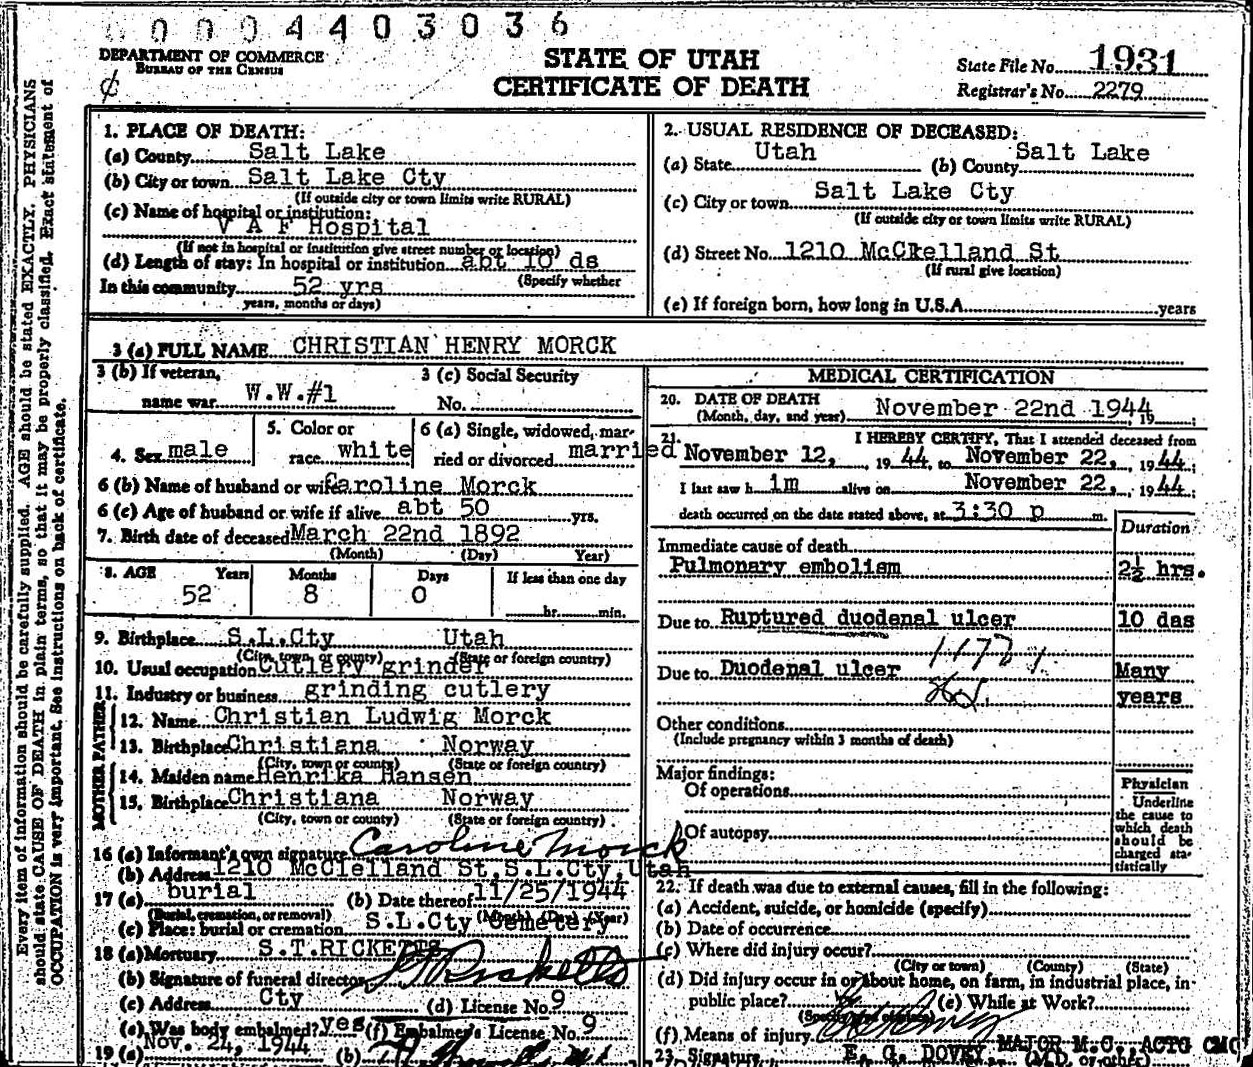 00004403036
DEPARTMENT OF COMMERCE
BUREAU OF THE CENSUS
₵
STATE OF UTAH
CERTIFICATE OF DEATH
State File No. 1931
Registrar's No. 2279
Every item of information should be carefully supplied. AGE should be stated EXACTLY. PHYSICIANS
should state CAUSE OF DEATH in plain terms, so that it may be properly classified. Exact statement of
OCCUPATION is very important. See instructions on back of certificate.
1. PLACE OF DEATH:
(a) County Salt Lake
(b) City or town Salt Lake Cty
(If outside city or town limits write RURAL)
(c) Name of hospital or institution:
V A F Hospital
(If not in hospital or institution give street number or location)
(d) Length of stay: In hospital or institution abt 10 ds
(Specify whether
In this community 52 yrs
years, months or days)
2. USUAL RESIDENCE OF DECEASED:
(a) State Utah (b) County Salt Lake
(c) City or town Salt Lake Cty
(If outside city or town limits write RURAL)
(d) Street No. 1210 McCkelland St
(If rural give location)
(e) If foreign born, how long in U.S.A. years
3 (a) FULL NAME CHRISTIAN HENRY MORCK
3 (b) If veteran,
name war W.W.#1
3 (c) Social Security
No.
4. Sex male
5. Color or
race white
6 (a) Single, widowed, mar-
ried or divorced married
6 (b) Name of husband or wife Caroline Morck
6 (c) Age of husband or wife if alive abt 50 yrs.
7. Birth date of deceased March 22nd 1892
(Month) (Day) Year)
8. AGE Years Months Days If less than one day
52 8 0 hr. min.
9. Birthplace S.L.Cty Utah
(City, town, or county) (State or foreign country)
10. Usual occupation Cutlery grinder
11. Industry or business grinding cutlery
FATHER
12. Name Christian Ludwig Morck
13. Birthplace Christiana Norway
(City, town or county) (State or foreign country)
MOTHER
14. Maiden name Henrika Hansen
15. Birthplace Christiana Norway
(City, town or county) (State or foreign country)
16 (a) Informant's own signature Caroline Morck
(b) Address 1210 McClelland St, S.L.Cty, Utah
17 (a) burial (b) Date thereof 11/25/1944
(Burial, cremation, or removal) (Month) (Day) (Year)
(c) Place: burial or cremation S.L.Cty Cemetery
18 (a) Mortuary S.T.RICKETTS
(b) Signature of funeral director S T Ricketts
(c) Address Cty (d) License No. 9
(e) Was body embalmed? yes (f) Embalmer's License No. 9
19 (a) Nov. 24, 1944 (b)
MEDICAL CERTIFICATION
20. DATE OF DEATH
(Month, day, and year) November 22nd 1944, 19 ;
21. I HEREBY CERTIFY, That I attended deceased from
November 12, , 19 44, to November 22, , 19 44 ;
I last saw h im alive on November 22, , 19 44 ;
death occurred on the date stated above, at 3:30 p m.
Duration
Immediate cause of death
Pulmonary embolism 2½ hrs.
Due to Ruptured duodenal ulcer 10 das
Due to Duodenal ulcer Many
years
Other conditions
(Include pregnancy within 3 months of death)
Major findings:
Of operations
Of autopsy
Physician
Underline
the cause to
which death
should be
charged sta-
tistically
22. If death was due to external causes, fill in the following:
(a) Accident, suicide, or homicide (specify)
(b) Date of occurrence
(c) Where did injury occur?
(City or town) (County) (State)
(d) Did injury occur in or about home, on farm, in industrial place, in
public place? (e) While at Work?
(f) Means of injury
23. Signature E. G. DOVEY, MAJOR M.C., ACTG CMO
(M.D. or other)